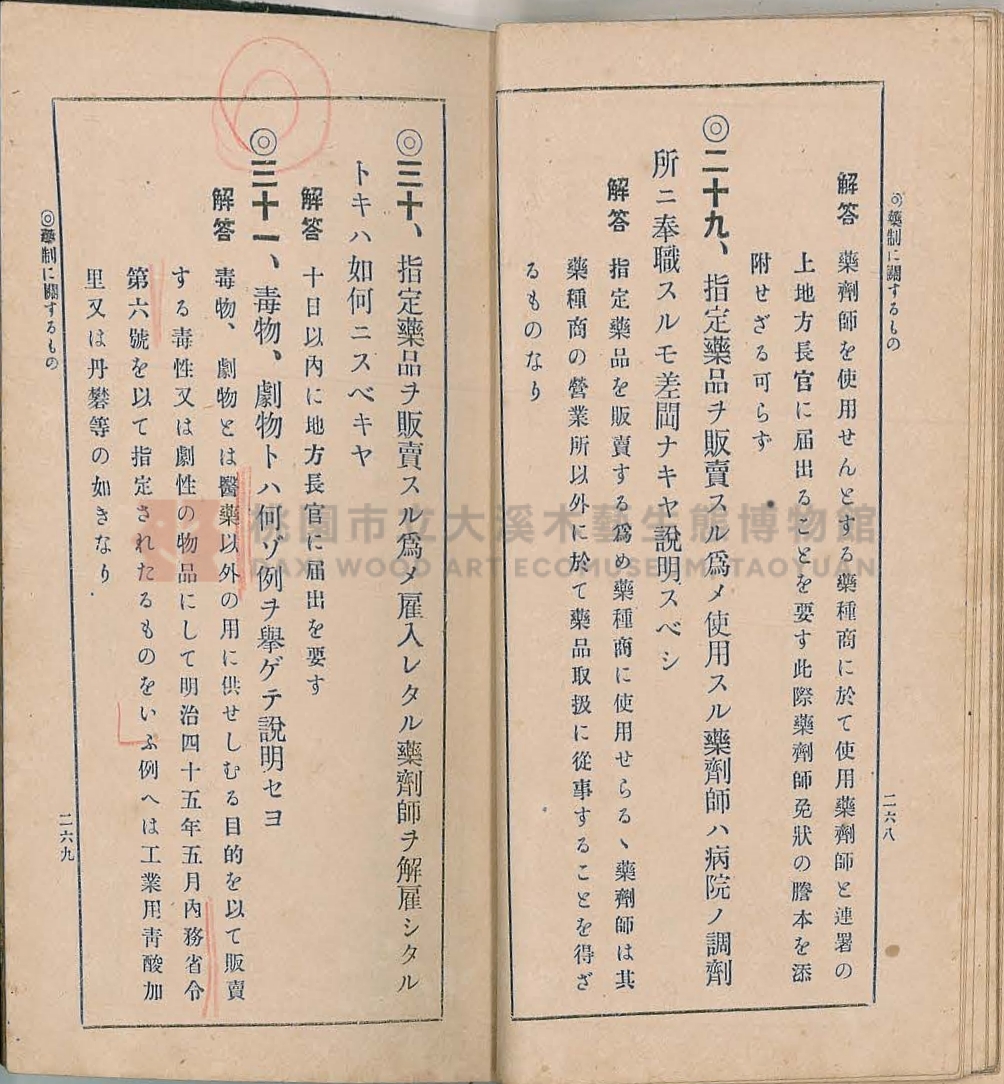 ◎藥制に關するもの
解答 藥劑師を使用せんとする藥種商に於て使用藥劑師と連署の
上地方長官に屆出ることを要す此際藥劑師免狀の謄本を添
附せざる可らず
◎二十九、指定藥品ヲ販賣スル爲メ使用スル藥劑師ハ病院ノ調劑
所ニ奉職スルモ差閊ナキヤ説明スベシ
解答 指定藥品を販賣する爲め藥種商に使用せらるヽ藥劑師は其
藥種商の營業所以外に於て藥品取扱に從事することを得ざ
るものなり
二六八
◎三十、指定藥品ヲ販賣スル爲メ雇入レタル藥劑師ヲ解雇シタル
トキハ如何ニスベキヤ
解答 十日以内に地方長官に屆出を要す
◎三十一、毒物、劇物トハ何ゾ例ヲ擧ゲテ説明セヨ
解答 毒物、劇物とは醫藥以外の用に供せしむる目的を以て販賣
する毒性又は劇性の物品にして明治四十五年五月内務省令
第六號を以て指定されたるものをいふ例へは工業用靑酸加
里又は丹礬等の如きなり
◎藥制に關するもの
二六九
桃園市立大溪木藝生態博物館
DAXI WOOD ART ECOMUSEUM, TAOYUAN